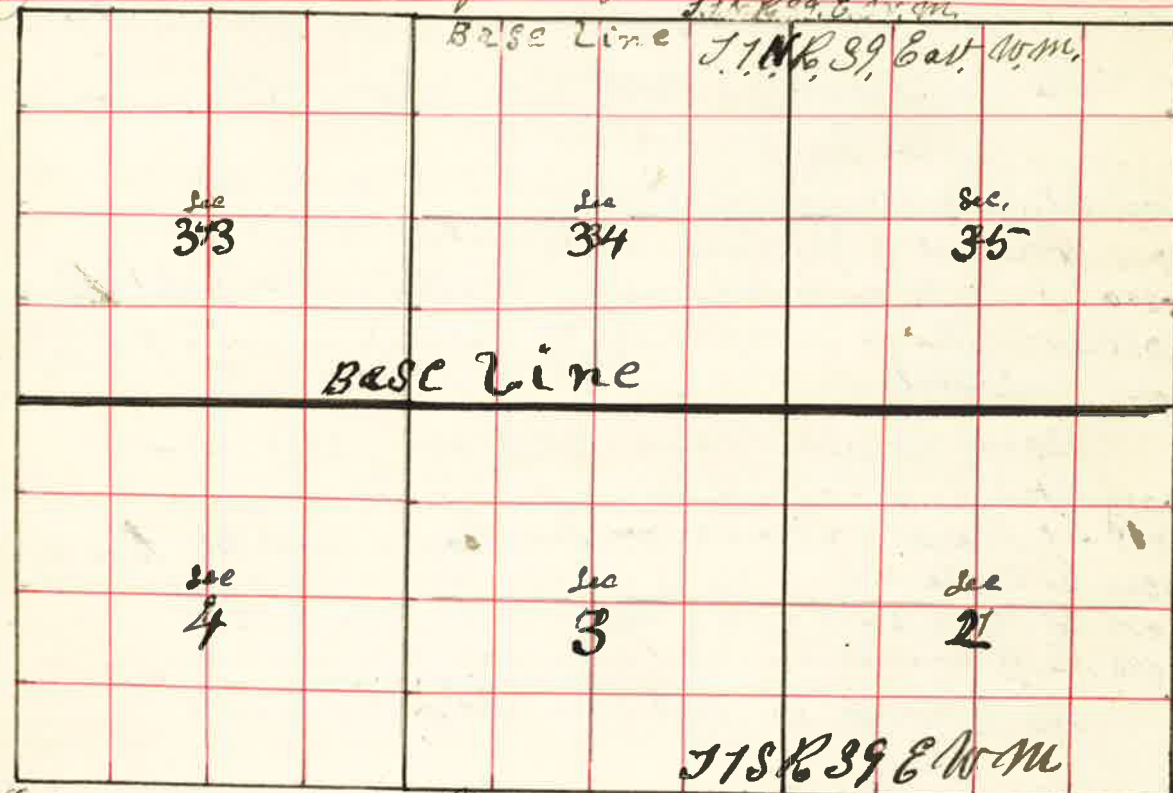 T.1N. R. 39. E. W. M.
Base Line
T. 1. N R, 39, East, W. M.
Sec
33
Sec
34
Sec.
35
Base Line
Sec
4
Sec
3
Sec
2
T 1 S R 39 E W M